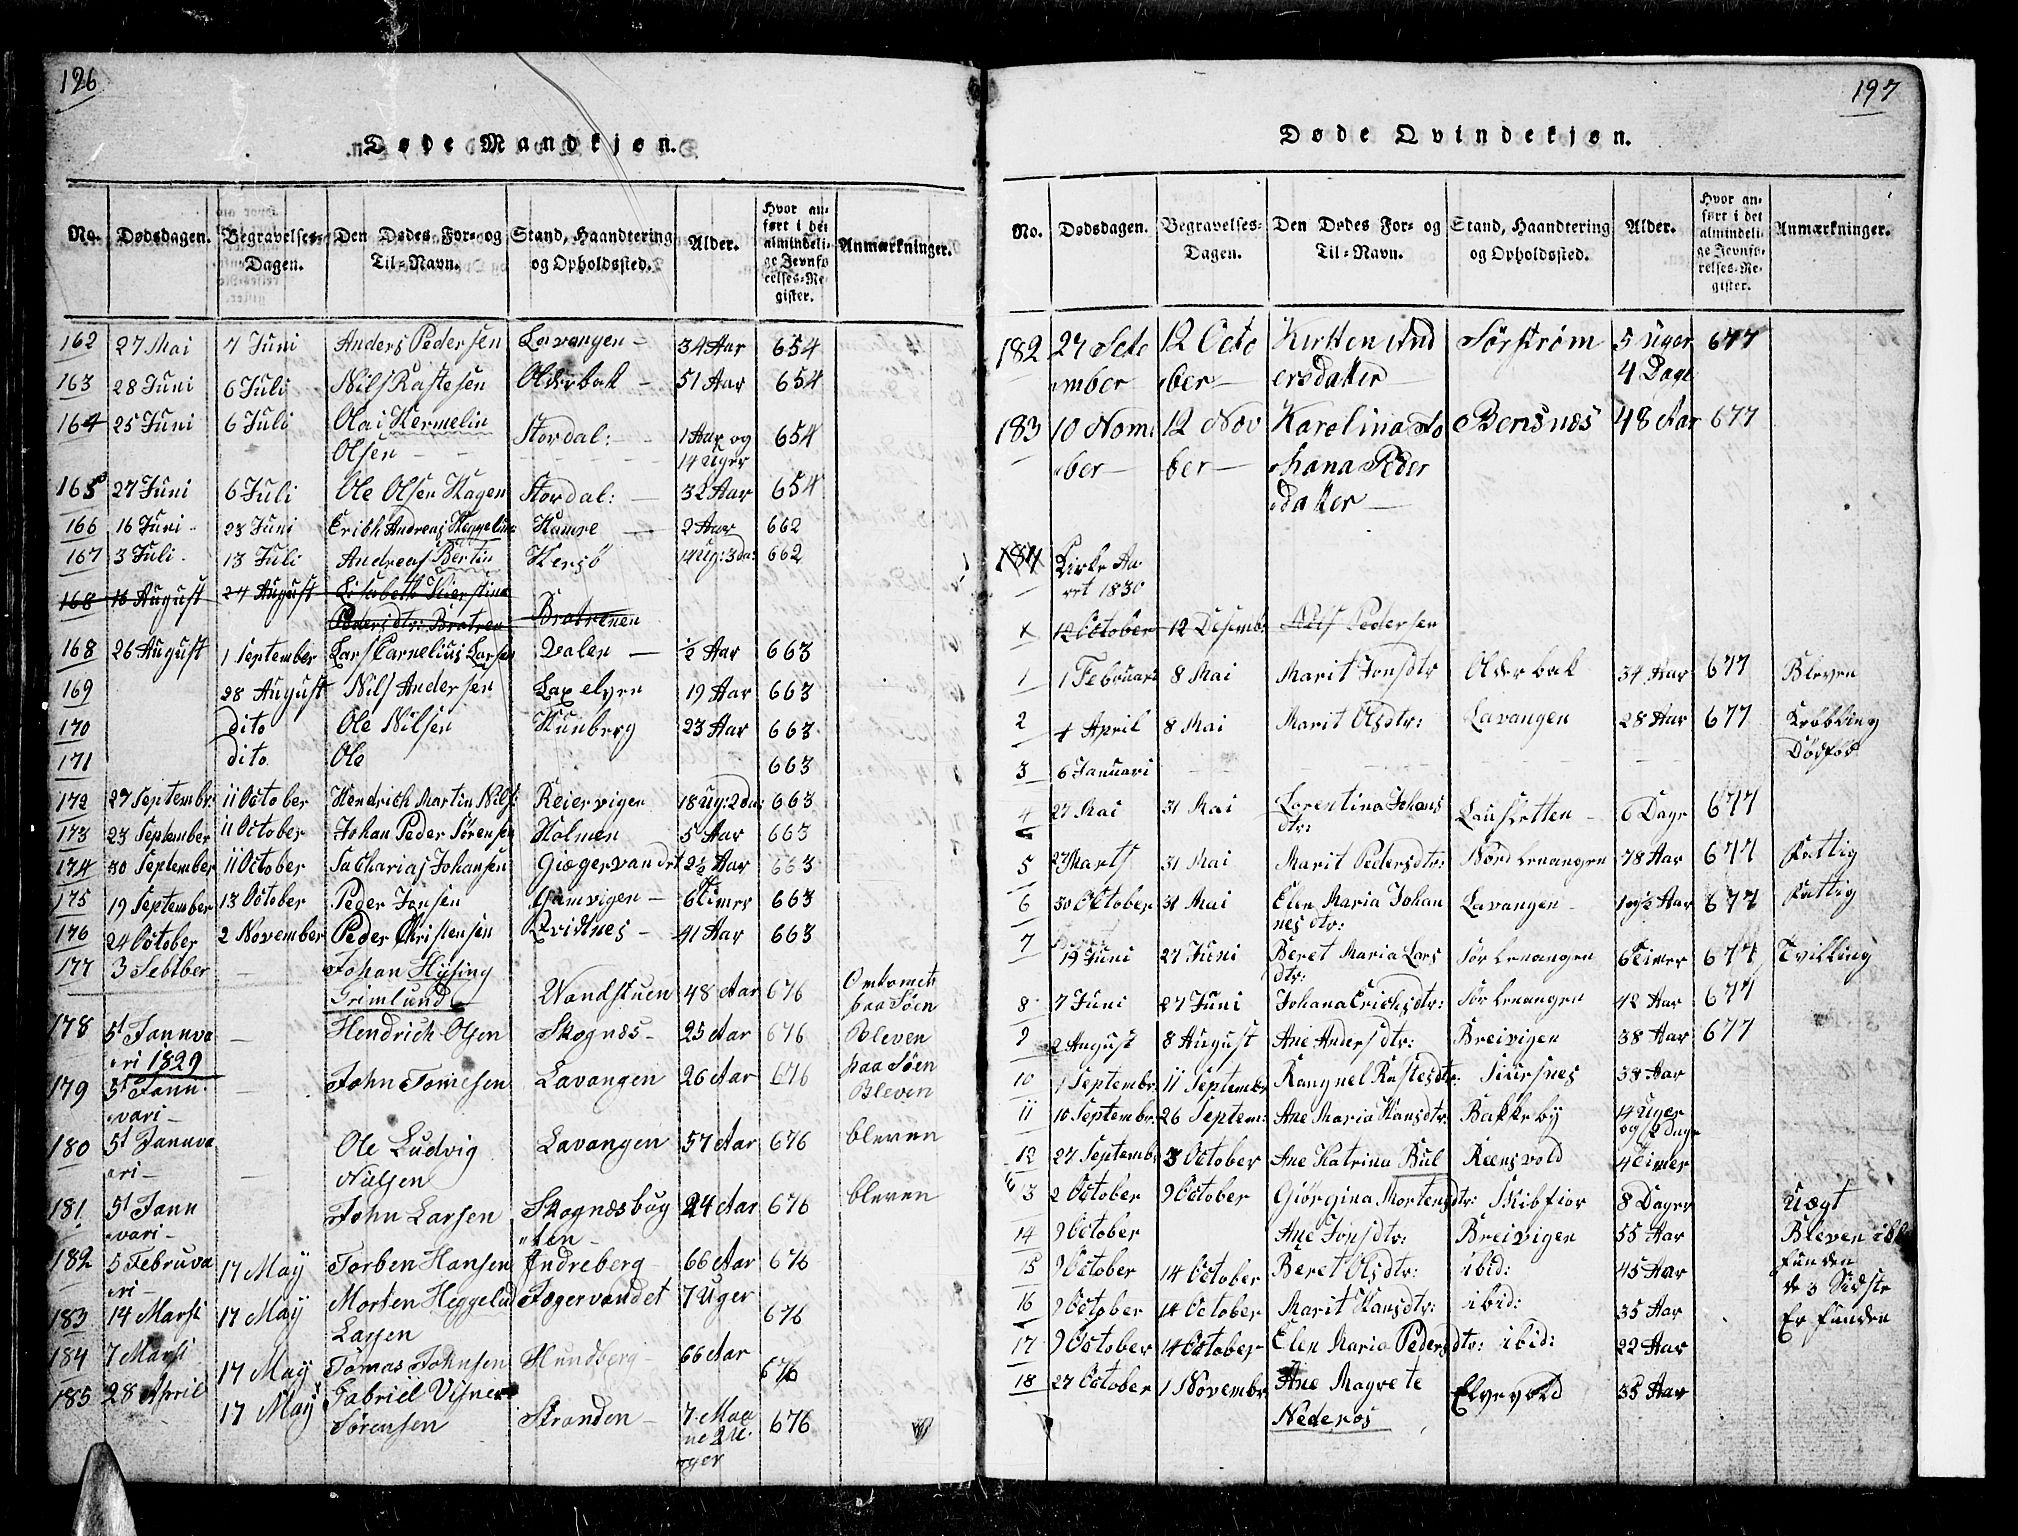 196
Døde Mandkjøn.
No. Dødsdagen. Begravelses-Dagen. Den Dødes For- og Til-Navn. Stand, Haandtering og Opholdssted. Alder. Hvor anført i det almindelige Jevnførelses-Register. Anmærkninger.
162 27 Mai 7 Juni Anders Pedersen Lavangen - 34 Aar 654
163 28 Juni 6 Juli Nils Rastesen Olderbak - 51 Aar 654
164 25 Juni 6 Juli Olai Hermelin Stordal: - 1 Aar og 654
Olsen - 14 Uger
165 27 Juni 6 Juli Ole Olsen Hagen Stordal: - 32 Aar 654
166 16 Juni - 23 Juni Erich Andreas Heggelund Hamre - 2 Aar 662
167 3 Juli - 13 Juli Andreas Bertin Hersö 14 Ug: 3 da: 662
168 18 August 24 August Elisabeth Kierstina
Pedersdtr: Bratren Bratrenen
168 26 August 1 September Lars Carnelius Larsen Dalen - ½ Aar 663
169 28 August Nils Andersen Laxelven 19 Aar 663
170 dito Ole Nilsen Hunberg 23 Aar 663
171 dito Ole 663
172 27 Septembr: 11 October Hendrich Martin Nils: Reiervigen 18 ug: 2 da: 663
173 23 September 11 October Johan Peder Sørensen Holmen 5 Aar 663
174 30 September 11 October Sacharias Johansen Giægervandet 2½ Aar 663
175 19 September 13 October Peder Jonsen Gamvigen - 6 Timer 663
176 24 October 2 November Peder Christensen Qvidtnes - 41 Aar 663
177 3 Septber - Johan Hysing
Grimlund Vandstuen 48 Aar 676 Omkomet
paa Søen
178 5t Januva - Hendrich Olsen Skognæs - 25 Aar 676 Bleven
ari 1829 paa Søen
179 5t Janu - John Tomesen Lavangen 26 Aar 676 Bleven
vari -
180 5t Januva Ole Ludvig Lavangen 57 Aar 676 bleven
ari - - Nilsen
181 5t Janu John Larsen Skognæsbug 24 Aar 676 bleven
vari - ten -
182 5 Februva 17 May Torben Hansen Indreberg - 66 Aar 676
ari -
183 14 Marsi 17 May Morten Heggelud Jægervandet 7 Uger 676
Larsen
184 7 Marsi 17 May Tomas Johnsen Hundberg - 66 Aar 676
185 28 April 17 May Gabriel Visner
Sørensen Stranden - 7 Maa 676
ne 2 U:
ger
197
Døde Qvindekjøn.
No. Dødsdagen. Begravelses-Dagen. Den Dødes For- og Til-Navn. Stand, Haandtering og Opholdssted. Alder. Hvor anført i det almindelige Jevnførelses-Register. Anmærkninger.
182 27 Sete 12 Octo Kirsten And Sørstrøm 5 Uger 677
mber ber - ersdatter 4 Dage
183 10 Novm 12 Nov Karolina Jo Bensnæs 48 Aar 677
ber - ber - hana Peder
sdatter -
184 Kirke Aa
ret 1830
x 12 October 12 Desemb: Nils Pedersen
1 1 Februari 8 Mai Marit Jonsdtr Olderbak 34 Aar 677 Bleven
2 4 April 8 Mai Marit Olsdtr: Lavangen 28 Aar 677 Krøbling
3 6 Januari Dödfød
4 27 Mai 31 Mai Lorentina Johans Lausletten - 6 Dage 677
dtr:
5 27 Marts 31 Mai Marit Pedersdtr: Nord Lenangen 78 Aar 677 Fattig
6 30 October 31 Mai Elen Maria Johan Lavangen - 19½ Aar 677 Fattig
nesdtr:
7 19 Juni 27 Juni Beret Maria Lars Sør Lenangen 6 Timer 677 Tvilling
dtr:
8 7 Juni 27 Juni Johana Erichsdtr: Sør Lenangen 42 Aar 677
9 2 August 8 August Ane Andersdtr: Breivigen 38 Aar 677
10 1 Septembr: 11 September Rangnel Rastesdtr: Siursnes 38 Aar
11 10 Septembr: 26 Septem: Ane Maria Hansdtr: Bakkeby 14 Uger
og 2 dage
12 27 Septemb: 3 October Ane Katrina Bul Reensvold 4 Timer
13 2 October 9 October Giörgina Mortensdtr: Skibfior 8 Dage Uægt
14 9 October Ane Jonsdtr: Breivigen 55 Aar Bleven
15 9 October 14 October Beret Olsdtr: ibid: 45 Aar funden
16 9 October 14 October Marit Hansdtr: ibid: 35 Aar de 3 Sidste
17 9 October 14 October Elen Maria Pedersdtr: ibid: 22 Aar Er funden
18 27 October 1 Novembr Ane Magrete Elvevold 35 Aar
Nederos